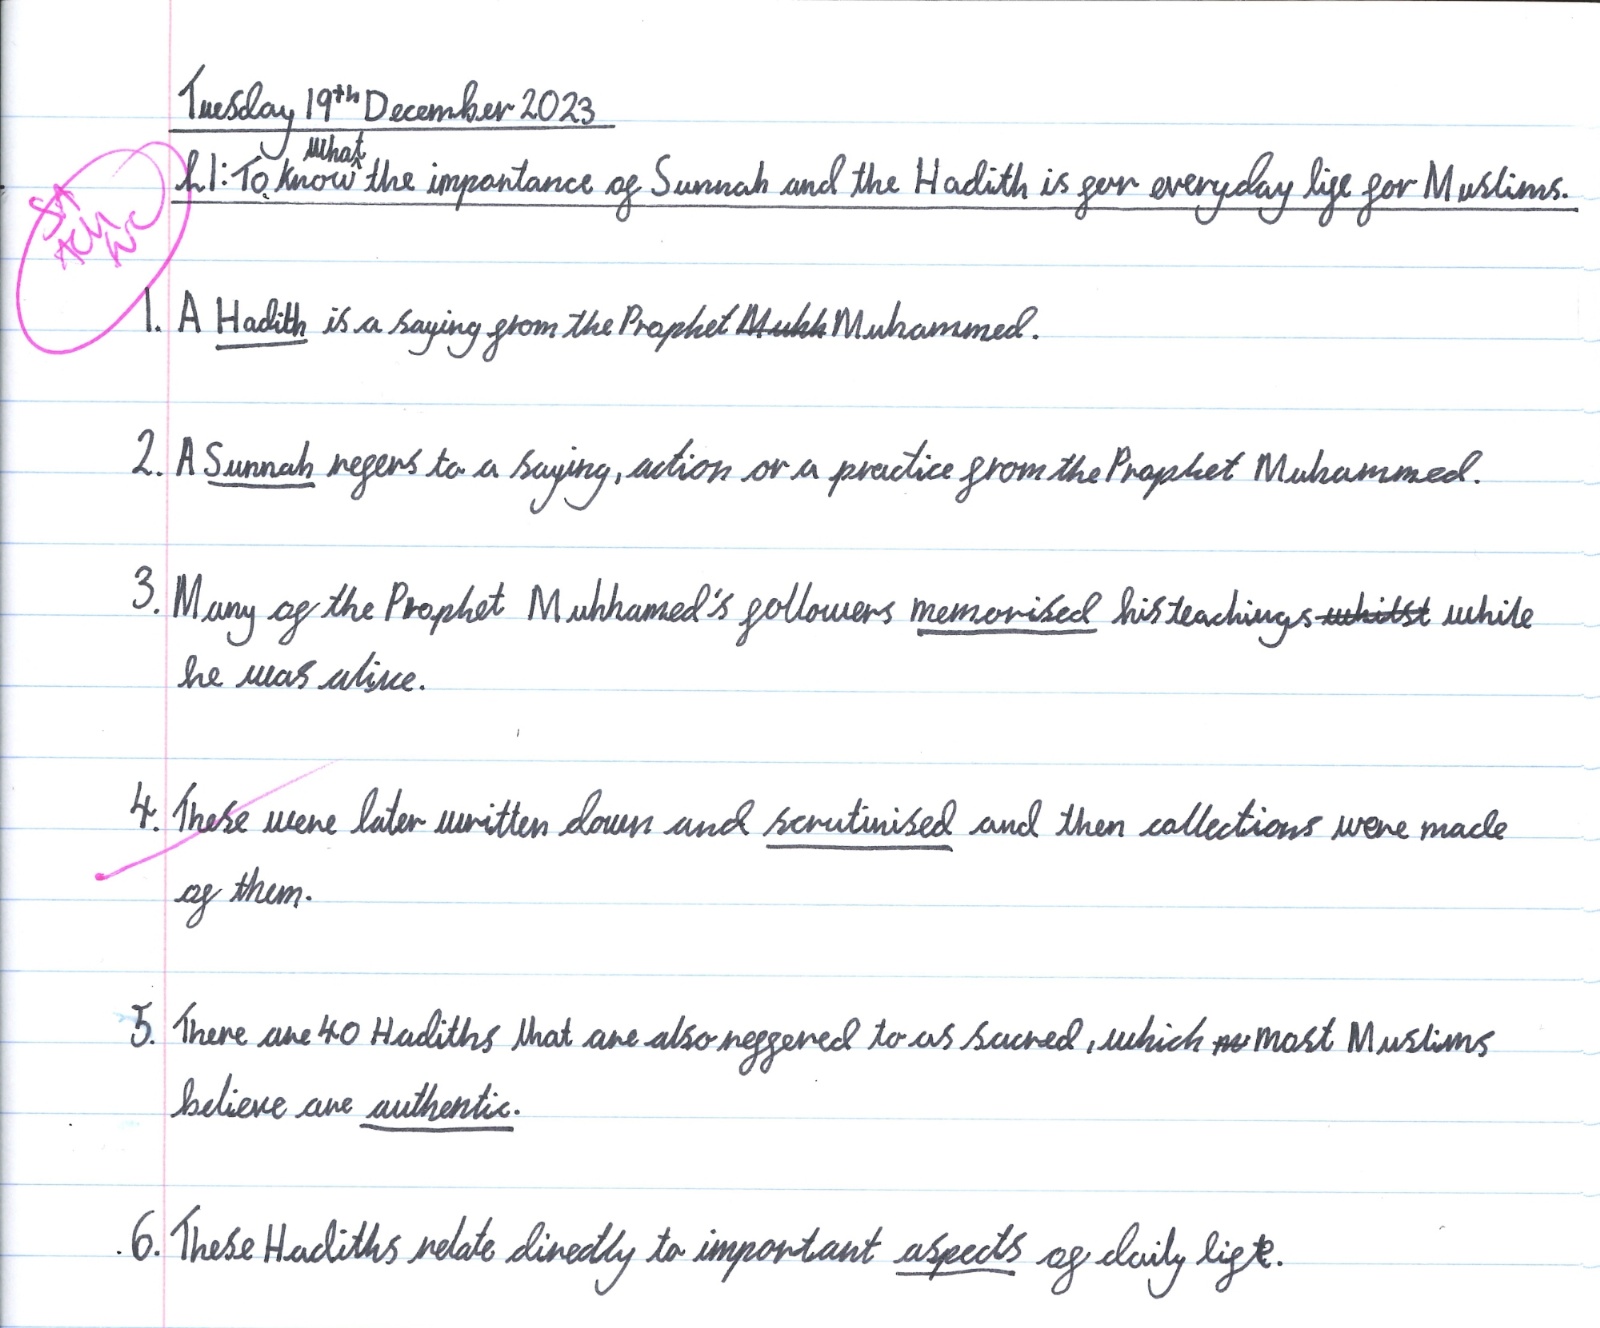 Tuesday 19th December 2023
LI: To know what the importance of Sunnah and the Hadith is for everyday life for Muslims.
SA
ACH
WC
1. A Hadith is a saying from the Prophet Muhh Muhammed.
2. A Sunnah refers to a saying, action or a practice from the Prophet Muhammed.
3. Many of the Prophet Muhhamed's followers memorised his teachings whilst while
he was alive.
4. These were later written down and scrutinised and then collections were made
of them.
5. There are 40 Hadiths that are also reffered to as sacred, which most Muslims
believe are authentic.
6. These Hadiths relate directly to important aspects of daily life.